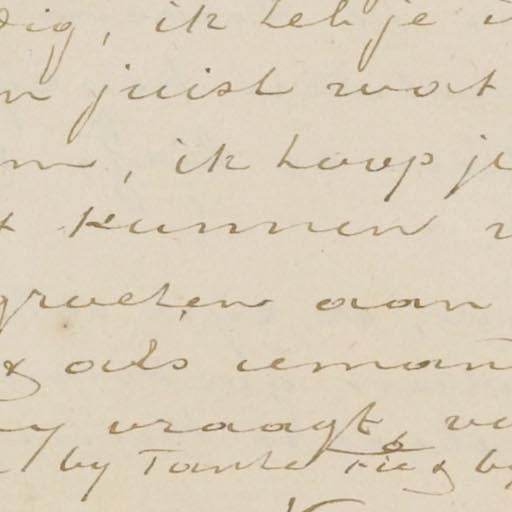 dig, ik heb je
n juist wat
m, ik hoop je
t kunnen
groeten aan
& als ieman
y vraagt, ve
by Tante Rie & by